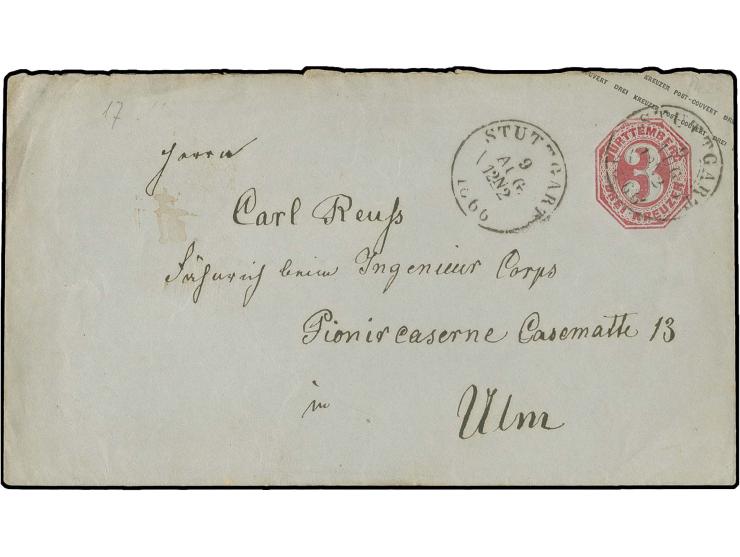 17
KREUZER POST-COUVERT DREI
COUVERT DREI KREUZER POST-COUVERT DREI
STUTTGART
9
AUG.
12N2
1866
WÜRTTEMBERG
3
DREI KREUZER
STUTTGART
Herrn
Carl Reuß
Fähnrich beim Ingenieur Corps
Pionircaserne Casematte 13
in
Ulm